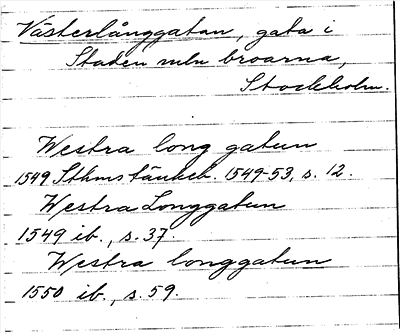 Västerlånggatan, gata i
Staden mln broarna,
Stockholm.
Westra long gatun
1549 Sthms tänkeb. 1549-53, s. 12.
Westra Longgatun
1549 ib., s. 37.
Westra longgatun
1550 ib., s. 59.